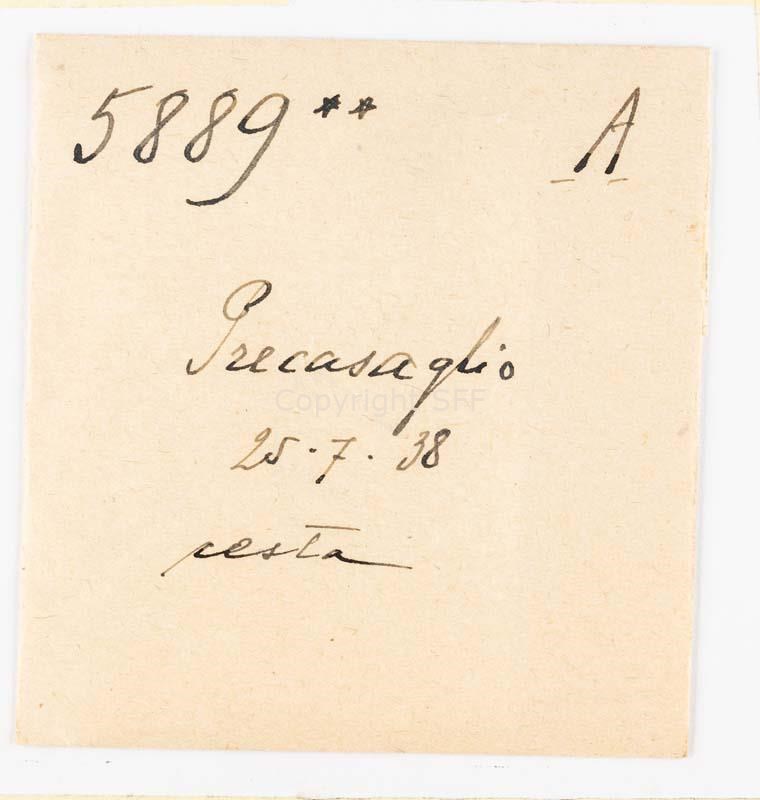 5889** A
Precasaglio
Copyright SFF
25.7.38
resta